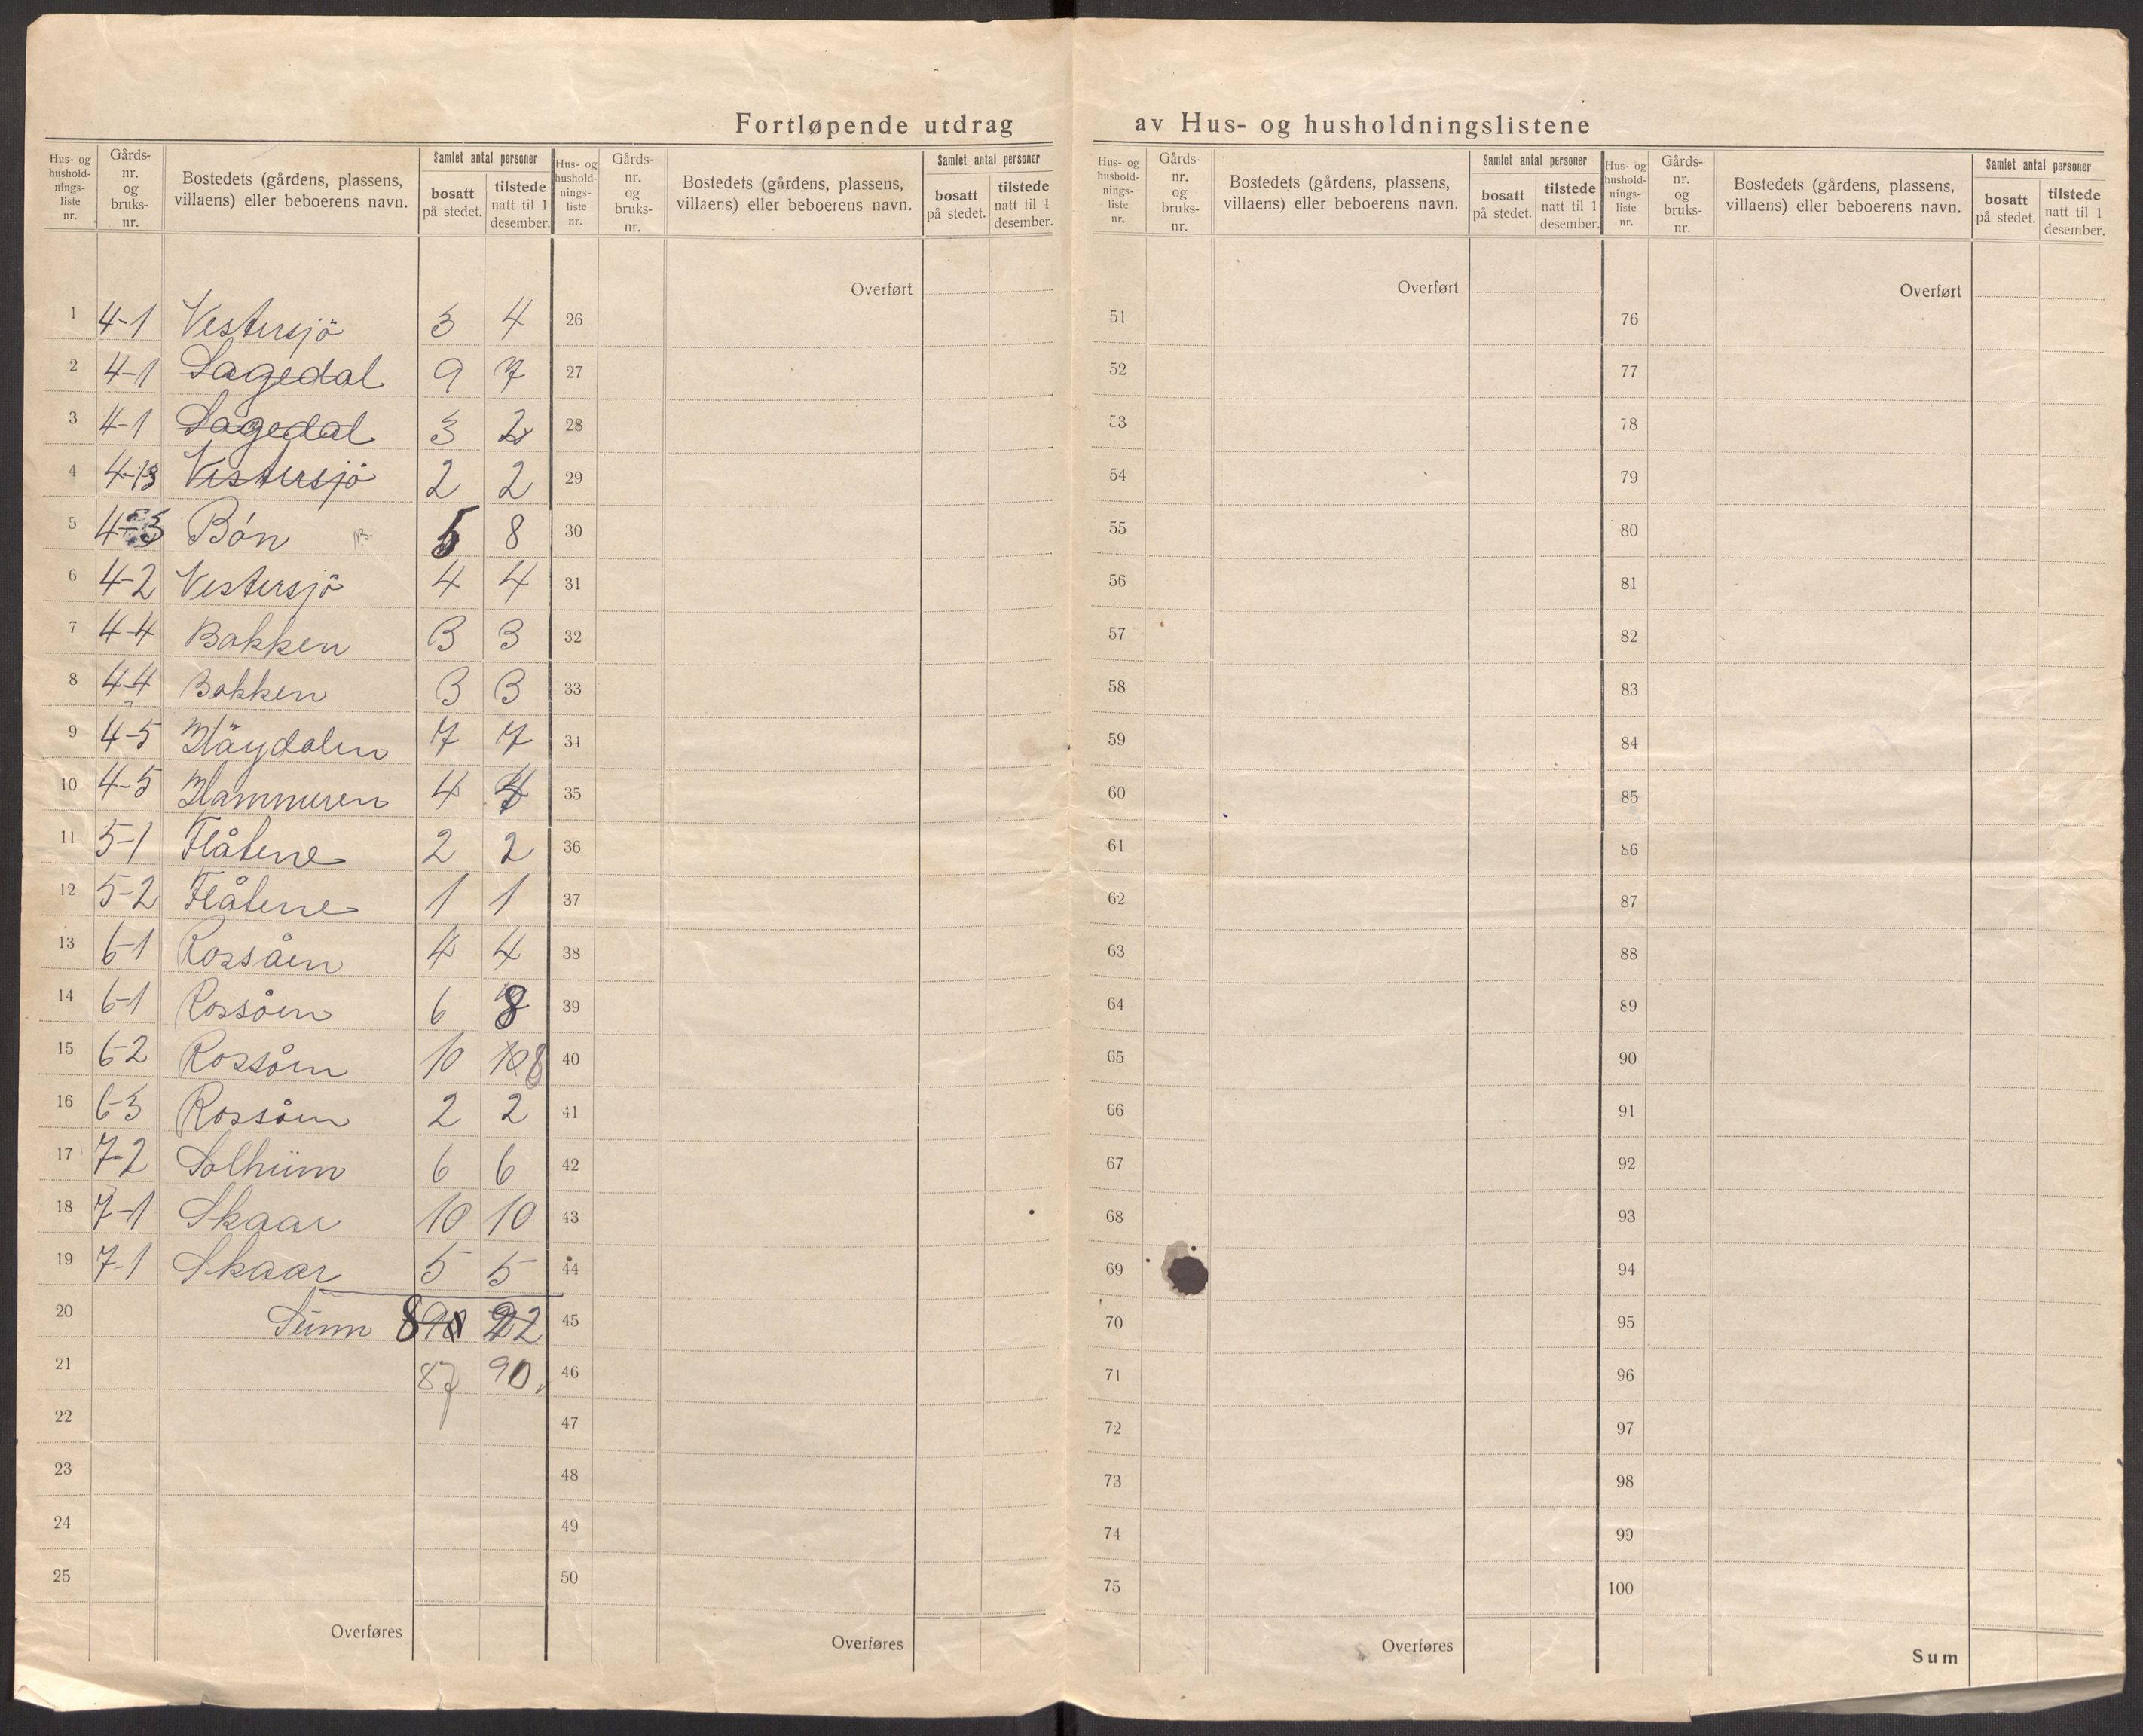 Fortløpende utdrag av Hus- og husholdningslistene
Hus- og hushold-nings-liste nr. Gårds-nr. og bruks-nr. Bostedets (gårdens, plassens, villaens) eller beboerens navn. Samlet antal personer bosatt på stedet. tilstede natt til 1 desember.
1 4-1 Vestersjö 3 4
2 4-1 Lagedal 9 7
3 4-1 Lagedal 3 2
4 4-13 Vestersjö 2 2
5 4-3 Bön 5 8
6 4-2 Vestersjö 4 4
7 4-4 Bakken 3 3
8 4-4 Bakken 3 3
9 4-5 Höydalen 7 7
10 4-5 Hammeren 4
11 5-1 Flåtene 2 2
12 5-2 Flåtene 1 1
13 6-1 Rossåen 4 4
14 6-1 Rossåen 6 8
15 6-2 Rossåen 10 8
16 6-3 Rossåen 2 2
17 7-2 Solhüm 6 6
18 7-1 Skaar 10 10
19 7-1 Skaar 5 5
20 Sum
21 87 90
22
23
24
25
Overføres
Hus- og hushold-nings-liste nr. Gårds-nr. og bruks-nr. Bostedets (gårdens, plassens, villaens) eller beboerens navn. Samlet antal personer bosatt på stedet. tilstede natt til 1 desember.
Overført
26
27
28
29
30
31
32
33
34
35
36
37
38
39
40
41
42
43
44
45
46
47
48
49
50
Overføres
Hus- og hushold-nings-liste nr. Gårds-nr. og bruks-nr. Bostedets (gårdens, plassens, villaens) eller beboerens navn. Samlet antal personer bosatt på stedet. tilstede natt til 1 desember.
Overført
51
52
53
54
55
56
57
58
59
60
61
62
63
64
65
66
67
68
69
70
71
72
73
74
75
Overføres
Hus- og hushold-nings-liste nr. Gårds-nr. og bruks-nr. Bostedets (gårdens, plassens, villaens) eller beboerens navn. Samlet antal personer bosatt på stedet. tilstede natt til 1 desember.
Overført
76
77
78
79
80
81
82
83
84
85
86
87
88
89
90
91
92
93
94
95
96
97
98
99
100
Sum